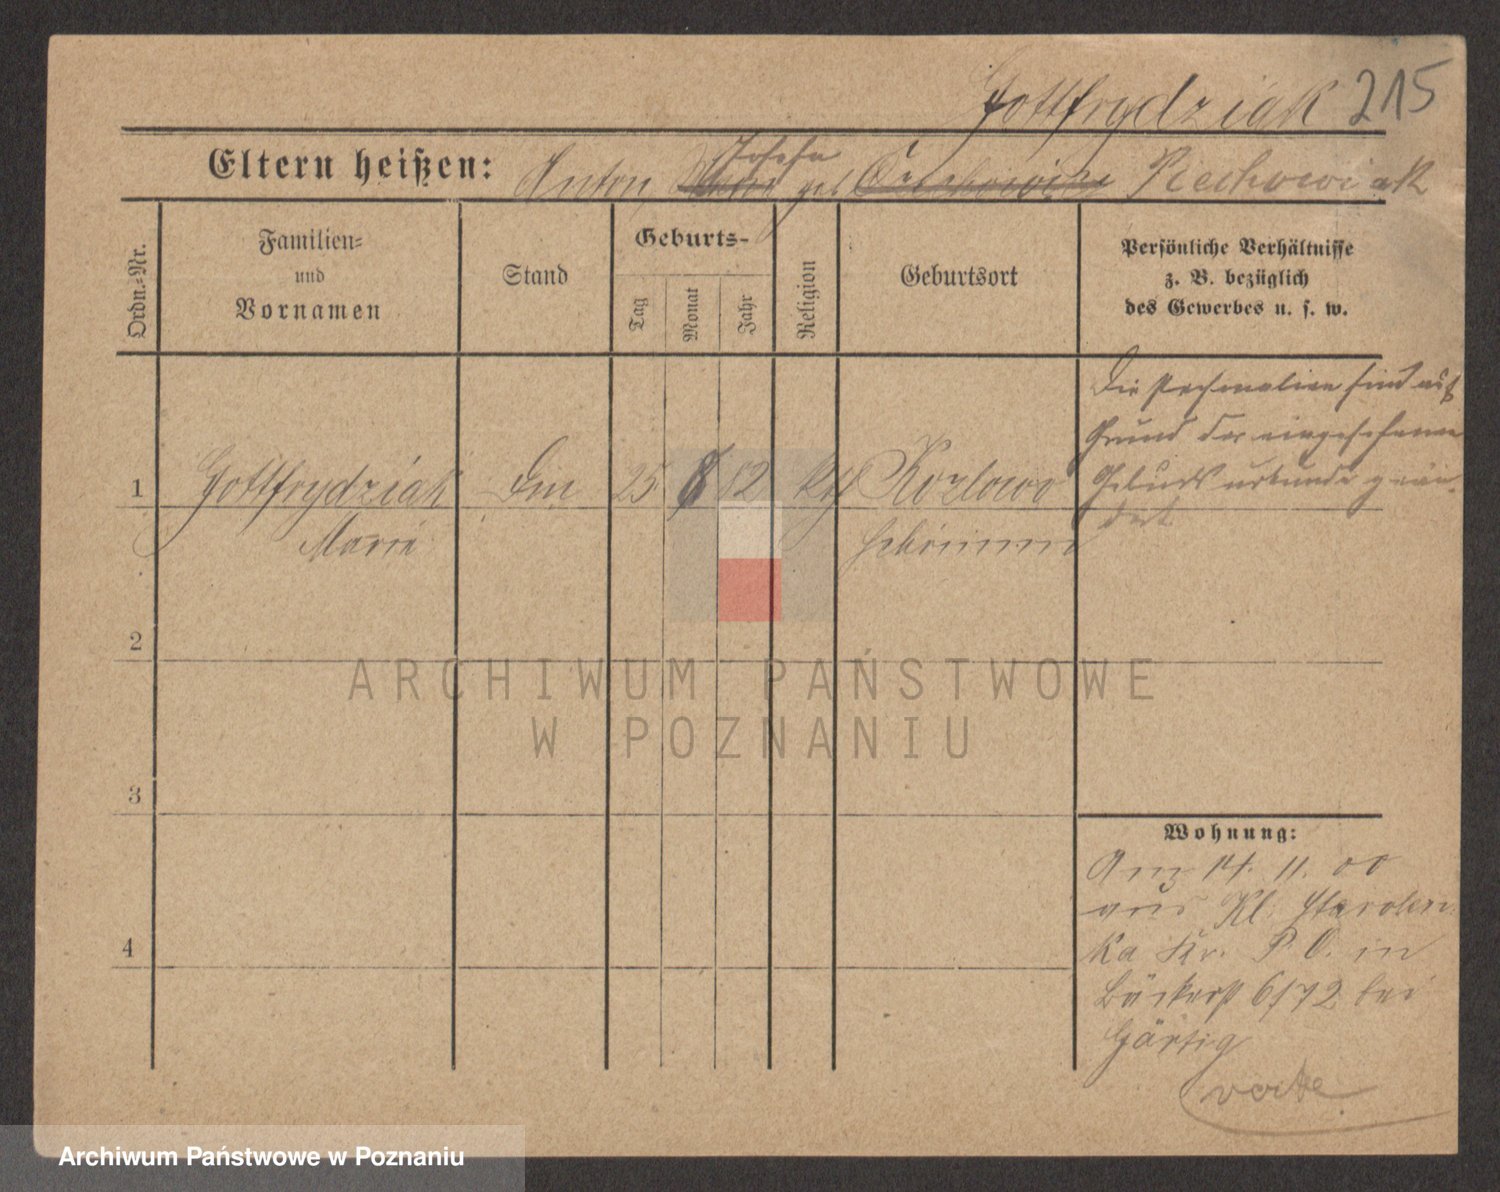 Gottfrydziak 215
Eltern heißen: Anton, Josefa geb Piechowiak
Ordn.-Nr.
Familien-
und
Vornamen
Stand
Geburts-
Tag
Monat
Jahr
Religion
Geburtsort
Persönliche Verhältnisse
z. B. bezüglich
des Gewerbes u. s. w.
Die Personalien sind auf
Grund der eingesehenen
Geburtsurkunde geän-
dert
1 Gottfrydziak Dm 25 8 82 kth Kozlowo
Marie
2
3
4
Wohnung:
Am 14. 11. 00
aus Kl. Starolen-
ka Kr. P. O. in
Bäckerst 6/72 bei
Gärtig
ARCHIWUM PAŃSTWOWE
W POZNANIU
Archiwum Państwowe w Poznaniu